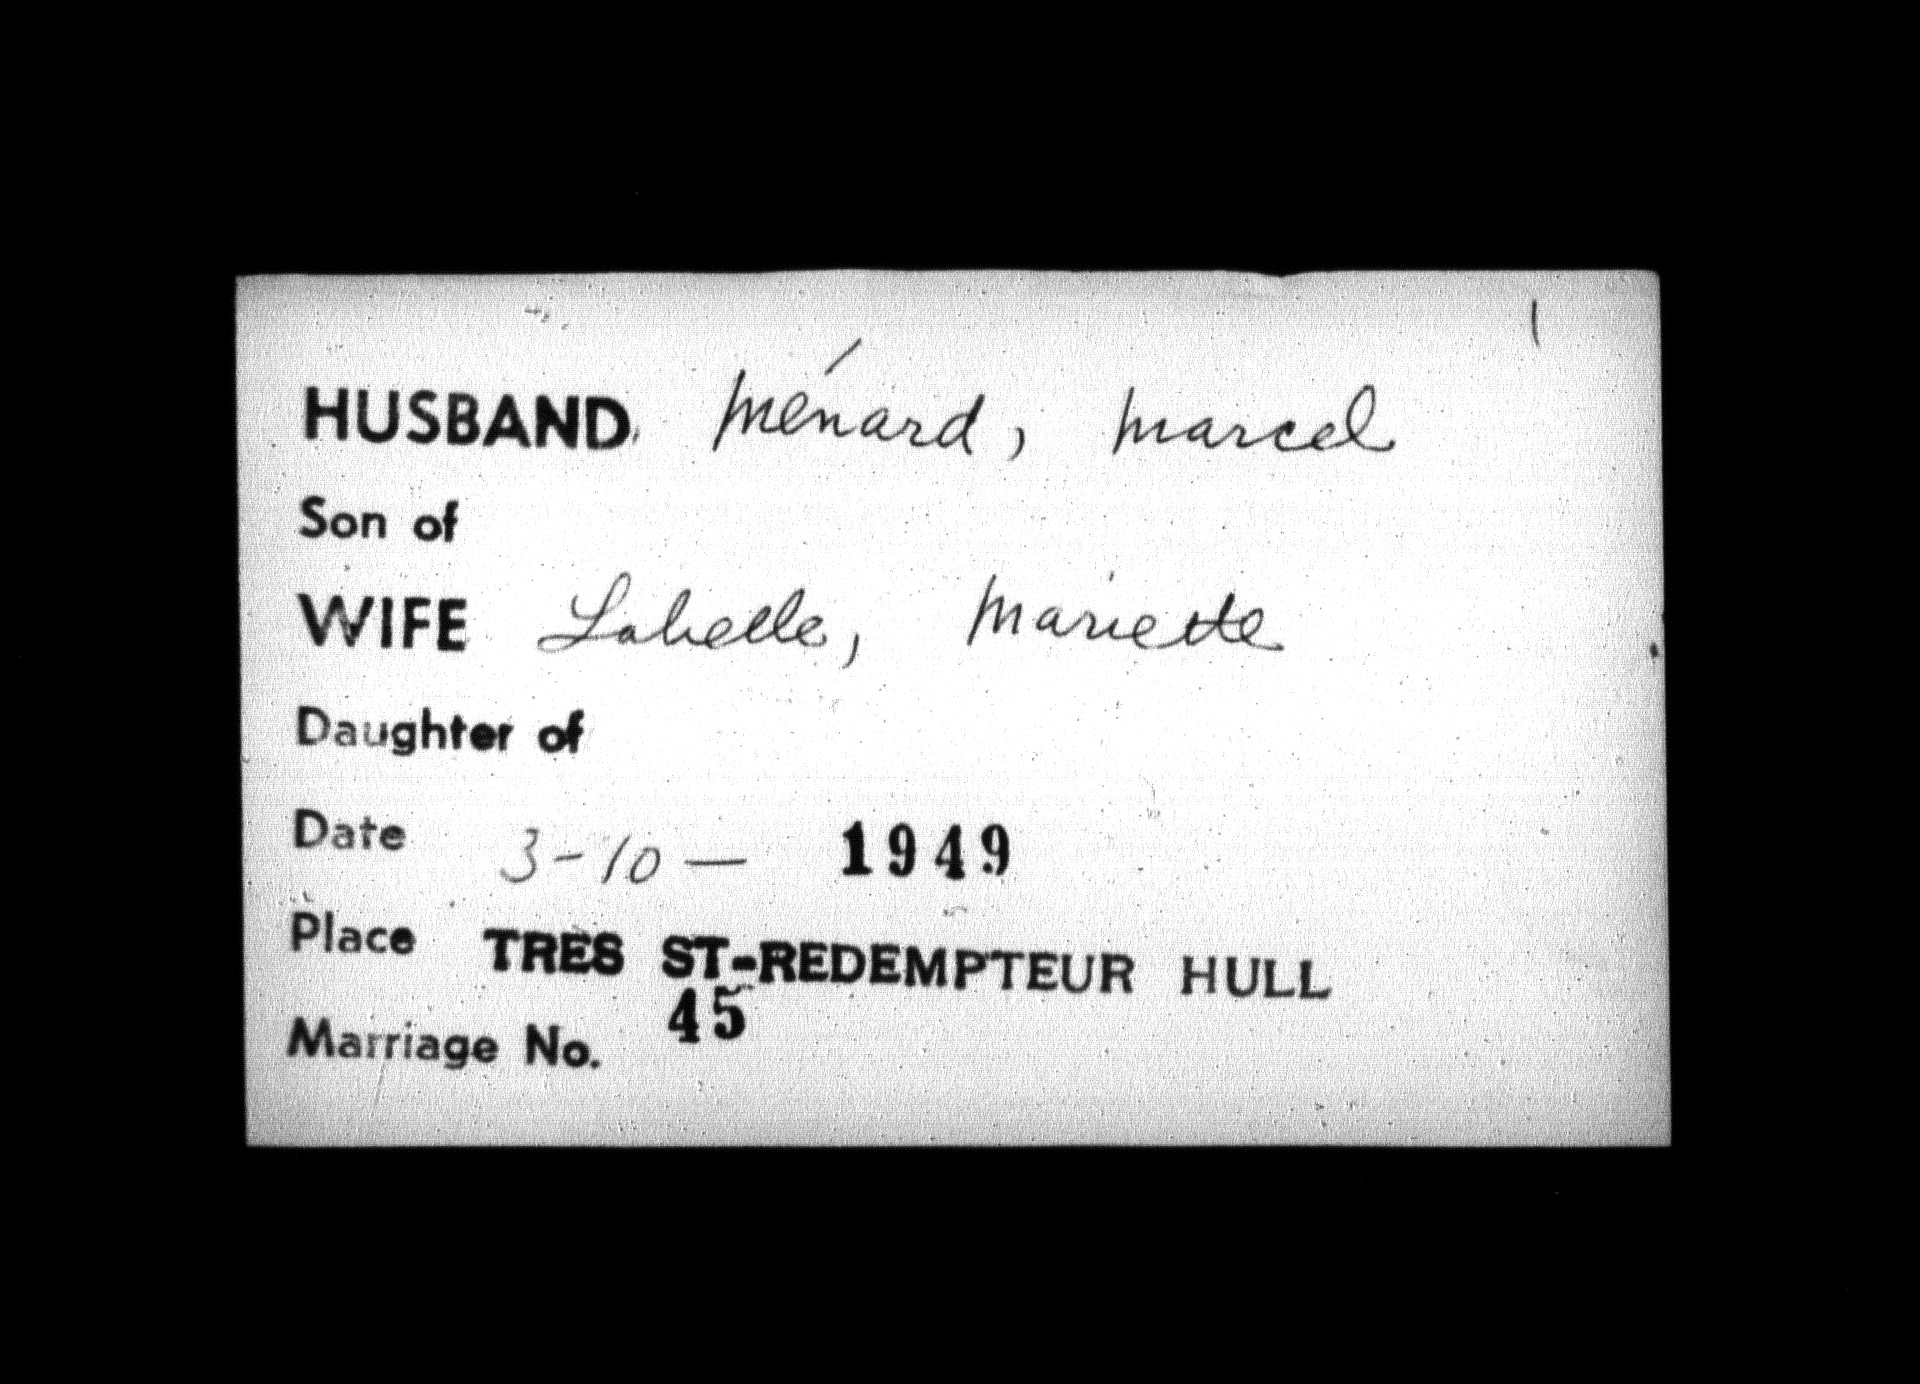 HUSBAND Ménard, Marcel
Son of
WIFE Labelle, Mariette
Daughter of
Date 3-10— 1949
Place TRES ST-REDEMPTEUR HULL
Marriage No. 45